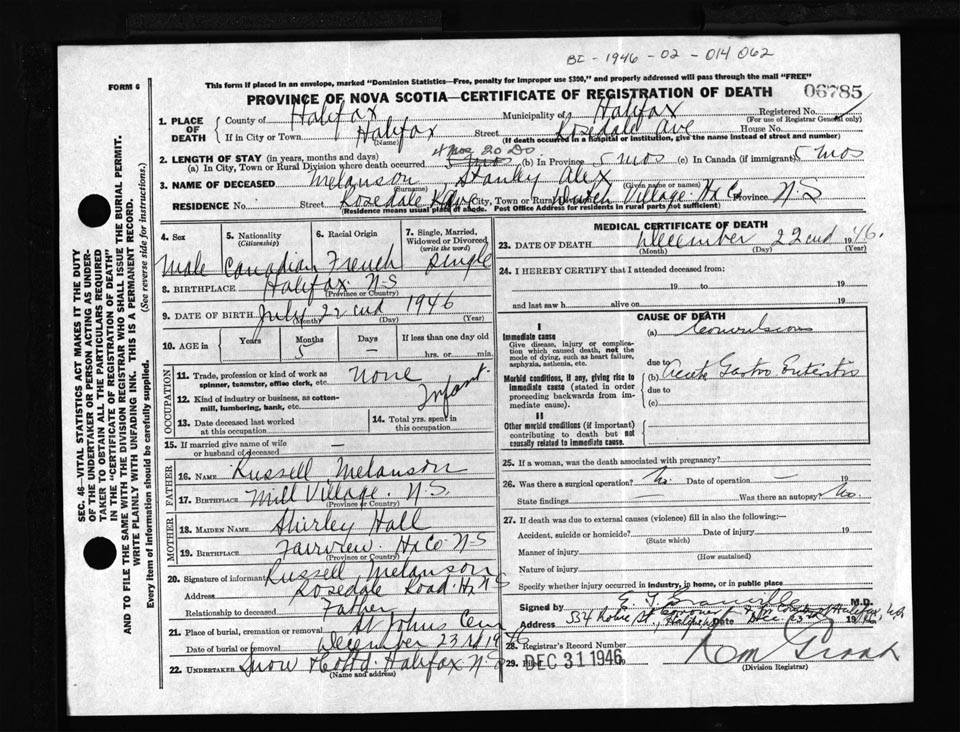 BI - 1946 - 02 - 014062
FORM 6
This form if placed in an envelope, marked "Dominion Statistics—Free, penalty for improper use $300," and properly addressed will pass through the mail "FREE"
PROVINCE OF NOVA SCOTIA—CERTIFICATE OF REGISTRATION OF DEATH
06785
1. PLACE OF DEATH
County of Halifax Municipality of Halifax Registered No.
(For use of Registrar General only)
If in City or Town Halifax Street Rosedale Ave House No.
(Name) (If death occurred in a hospital or institution, give the name instead of street and number)
2. LENGTH OF STAY (in years, months and days)
(a) In City, Town or Rural Division where death occurred 5 mos (b) In Province 5 mos (c) In Canada (if immigrant) 5 mos
3. NAME OF DECEASED Melanson Stanley Alex
(Surname) (Given name or names)
RESIDENCE No. Street Rosedale Ave City, Town or Rural Dutch Village Hx Co Province N-S
(Residence means usual place of abode. Post Office Address for residents in rural parts not sufficient)
4. Sex
Male
5. Nationality (Citizenship)
Canadian
6. Racial Origin
French
7. Single, Married, Widowed or Divorced (write the word)
Single
8. BIRTHPLACE Halifax N-S
(Province or Country)
9. DATE OF BIRTH July 22nd 1946
(Month) (Day) (Year)
10. AGE in Years Months Days If less than one day old
5 — hrs. or min.
OCCUPATION
11. Trade, profession or kind of work as spinner, teamster, office clerk, etc. None
12. Kind of industry or business, as cotton-mill, lumbering, bank, etc. Infant
13. Date deceased last worked at this occupation
14. Total yrs. spent in this occupation
15. If married give name of wife or husband of deceased —
FATHER
16. NAME Russell Melanson
17. BIRTHPLACE Mill Village. N.S.
(Province or Country)
MOTHER
18. MAIDEN NAME Shirley Hall
19. BIRTHPLACE Fairview Hx Co N-S
(Province or Country)
20. Signature of informant Russell Melanson
Address Rosedale Road Hx N S
Relationship to deceased Father
21. Place of burial, cremation or removal St Johns Cem
Date of burial or removal December 23rd 1946
22. UNDERTAKER Snow & Co Ltd. Halifax N-S
(Name and address)
MEDICAL CERTIFICATE OF DEATH
23. DATE OF DEATH December 22nd 1946.
(Month) (Day) (Year)
24. I HEREBY CERTIFY that I attended deceased from:
19 to 19
and last saw h alive on 19
CAUSE OF DEATH
I
Immediate cause
Give disease, injury or complication which caused death, not the mode of dying, such as heart failure, asphyxia, asthenia, etc.
(a) Convulsions
due to
Morbid conditions, if any, giving rise to immediate cause (stated in order proceeding backwards from immediate cause).
(b) Acute Gastro Enteritis
due to
(c)
II
Other morbid conditions (if important) contributing to death but not causally related to immediate cause.
25. If a woman, was the death associated with pregnancy?
26. Was there a surgical operation? No. Date of operation — 19
State findings — Was there an autopsy? No.
27. If death was due to external causes (violence) fill in also the following:—
Accident, suicide or homicide? Date of injury 19
(State which)
Manner of injury
(How sustained)
Nature of injury
Specify whether injury occurred in industry, in home, or in public place
Signed by M.D.
Address Date Dec. 1946
28. Registrar's Record Number
29. Filed DEC 31 1946
(Division Registrar)
SEC. 46—VITAL STATISTICS ACT MAKES IT THE DUTY
OF THE UNDERTAKER OR PERSON ACTING AS UNDER-
TAKER TO OBTAIN ALL THE PARTICULARS REQUIRED
IN THE "CERTIFICATE OF REGISTRATION OF DEATH"
AND TO FILE THE SAME WITH THE DIVISION REGISTRAR WHO SHALL ISSUE THE BURIAL PERMIT.
WRITE PLAINLY WITH UNFADING INK. THIS IS A PERMANENT RECORD.
Every item of information should be carefully supplied. (See reverse side for instructions.)